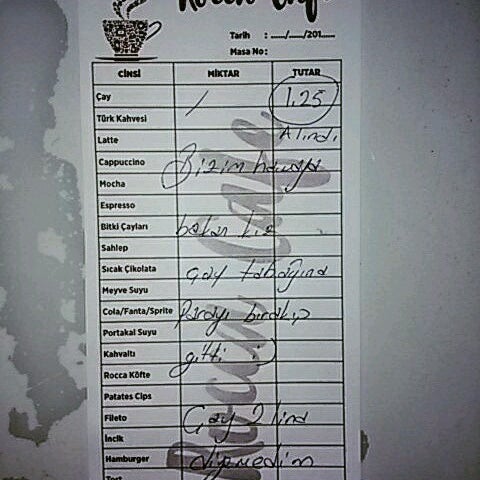 Tarih : ...../...../201.....
Masa No:
CİNSİ MİKTAR TUTAR
Çay / 1.25
Türk Kahvesi
Latte Alındı
Cappuccino Bizim
Mocha
Espresso
Bitki Çayları bakan kız
Sahlep
Sıcak Çikolata çay tabağına
Meyve Suyu
Cola/Fanta/Sprite Parayı bırakıp
Portakal Suyu
Kahvaltı gitti
Rocca Köfte
Patates Cips
Fileto Çay 2 lira
İncik
Hamburger diyemedim
Tart
Rocca Cafe